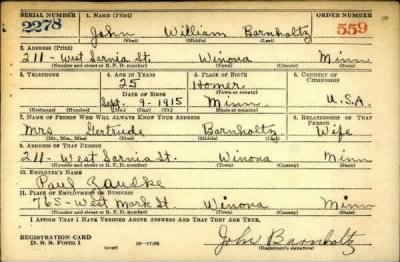 SERIAL NUMBER 1. NAME (Print) ORDER NUMBER
2278 John William Barnholtz 559
(First) (Middle) (Last)
2. ADDRESS (Print)
211 - West Sarnia St. Winona Minn
(Number and street or R. F. D. number) (Town) (County) (State)
3. TELEPHONE 4. AGE IN YEARS 5. PLACE OF BIRTH 6. COUNTRY OF CITIZENSHIP
25 Homer
DATE OF BIRTH (Town or county)
Sept. 9 - 1915 Minn. U.S.A.
(Exchange) (Number) (Mo.) (Day) (Yr.) (State or country)
7. NAME OF PERSON WHO WILL ALWAYS KNOW YOUR ADDRESS 8. RELATIONSHIP OF THAT PERSON
Mrs Gertrude Barnholtz Wife
(Mr., Mrs., Miss) (First) (Middle) (Last)
9. ADDRESS OF THAT PERSON
211 - West Sarnia St. Winona Minn
(Number and street or R. F. D. number) (Town) (County) (State)
10. EMPLOYER'S NAME
Paul
11. PLACE OF EMPLOYMENT OR BUSINESS
765 - West Mark St. Winona Minn
(Number and street or R. F. D. number) (Town) (County) (State)
I AFFIRM THAT I HAVE VERIFIED ABOVE ANSWERS AND THAT THEY ARE TRUE.
REGISTRATION CARD
D. S. S. Form 1 John Barnholtz
(Registrant's signature)